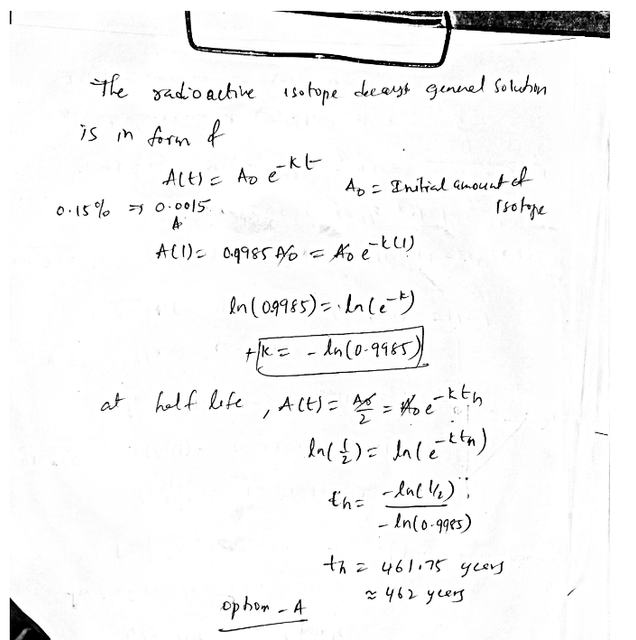 The radioactive isotope decays general solution
is in form of
A(t) = A₀ e^-kt
A₀ = Initial amount of
Isotope
0.15% ⇒ 0.0015
A(1) = 0.9985 A₀ = A₀ e^-k(1)
ln(0.9985) = ln(e^-k)
+k = - ln(0.9985)
at half life, A(t) = A₀/2 = A₀ e^-kth
ln(1/2) = ln(e^-kth)
th = -ln(1/2) / -ln(0.9985)
th = 461.75 years
≈ 462 years
option - A